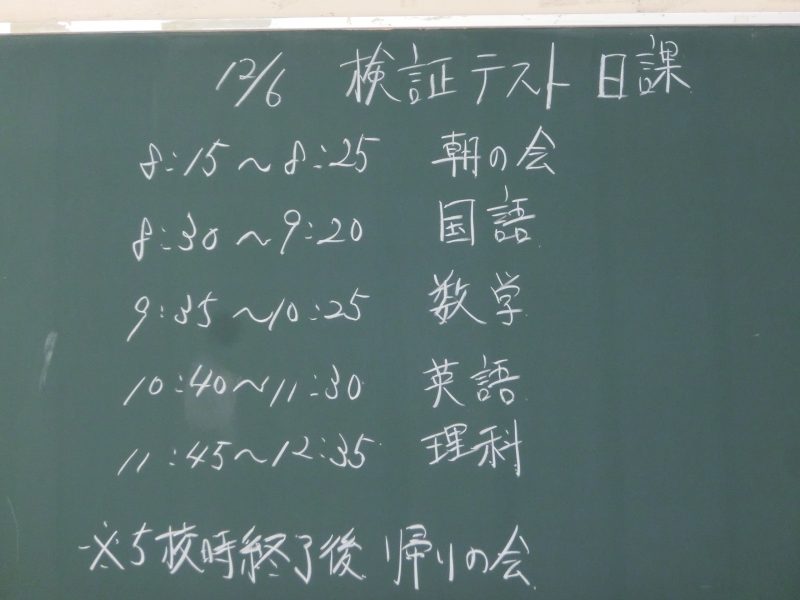 12/6 検証テスト 日課
8:15～8:25 朝の会
8:30～9:20 国語
9:35～10:25 数学
10:40～11:30 英語
11:45～12:35 理科
※5校時終了後 帰りの会